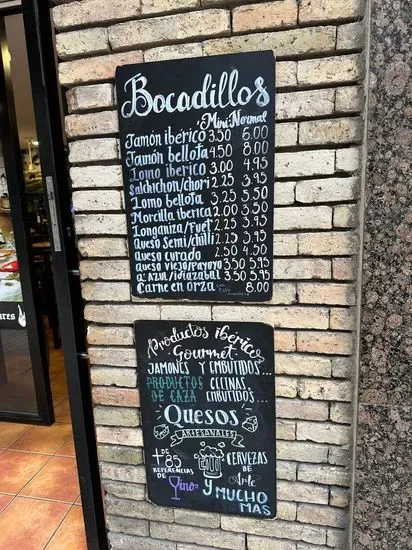 Bocadillos
Mini: Normal
Jamón ibérico 3.50 6.00
Jamón bellota 4.50 8.00
Lomo ibérico 3.00 4.95
Salchichón/chori 2.25 3.95
Lomo bellota 3.25 5.50
Morcilla ibérica 2.00 3.50
Longaniza/Fuet 2.25 3.95
Queso Semi/chilli 2.25 3.95
Queso curado 2.50 4.50
Queso Viejo/Payoyo 3.50 5.95
Q. Azul/Idiazabal 3.50 5.95
Carne en Orza 8.00
Productos ibéricos
Gourmet
Jamones y Embutidos...
Productos de caza
Cecinas,
Embutidos...
Quesos
Artesanales
+ de 85 referencias de Vino
Cervezas de Arte
y Mucho Mas